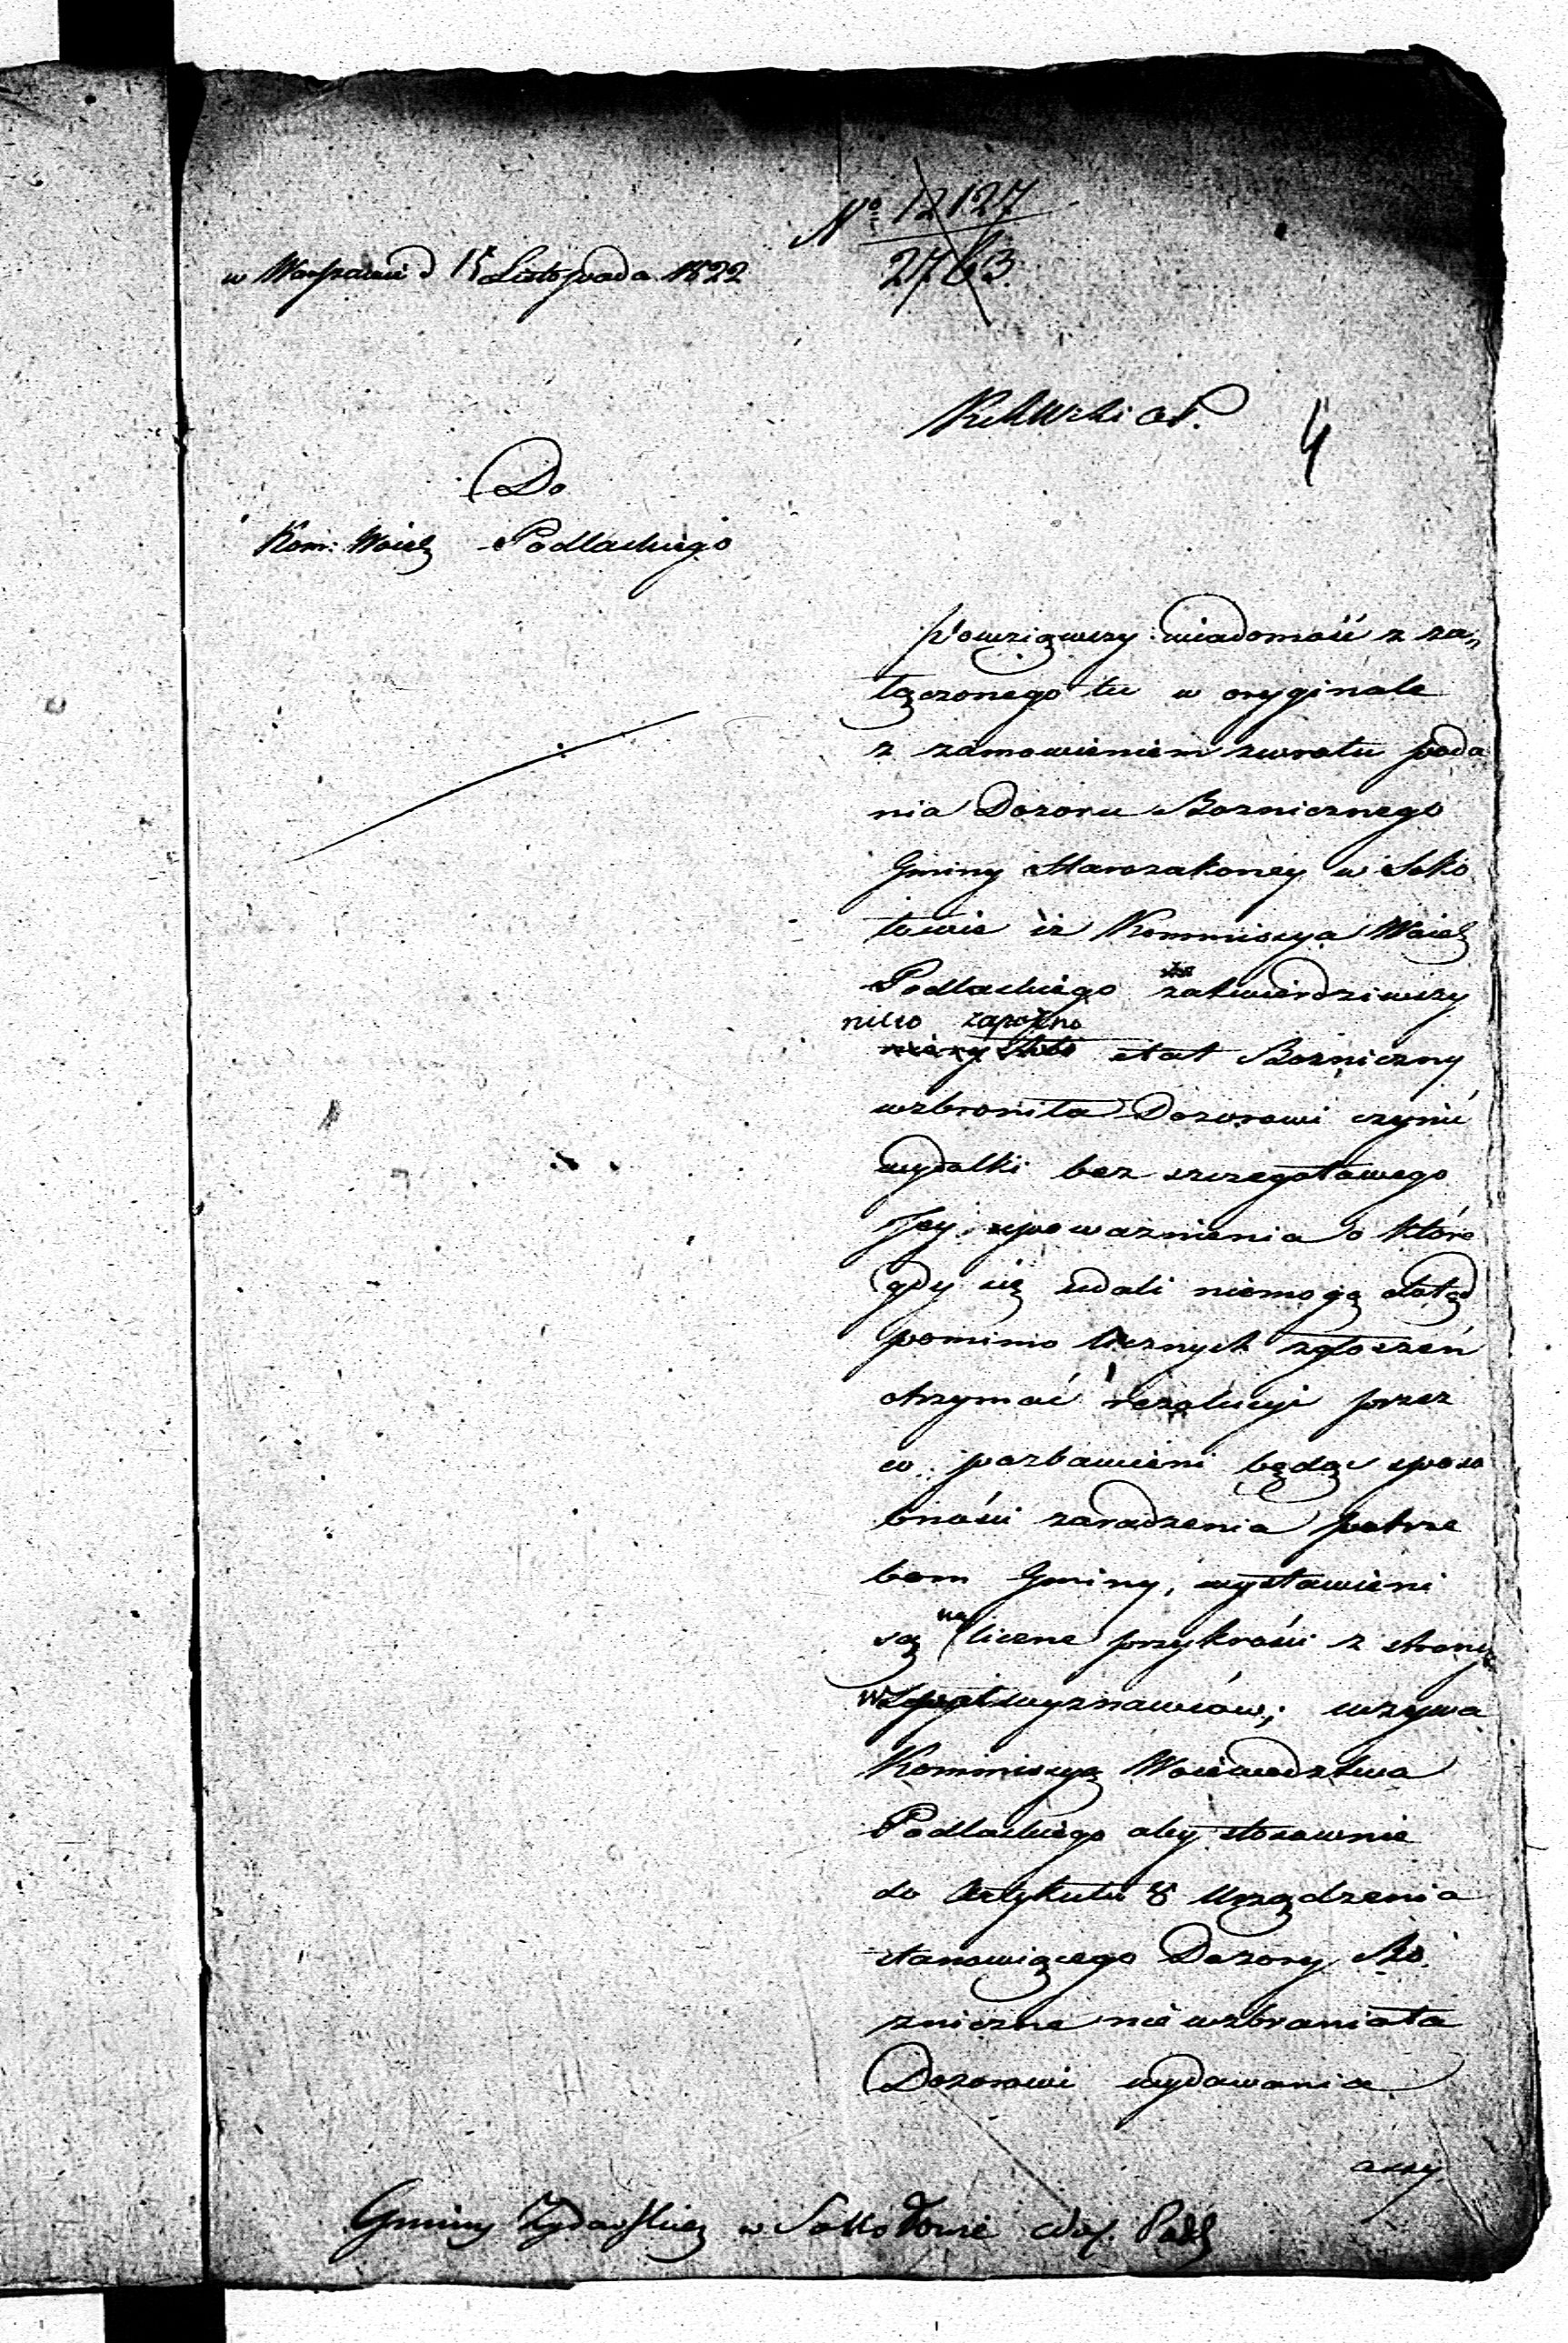 No 12127
2763
w Warszawie d 15 Listopada 1822
4
Do
Kom: Woiew Podlaskiego
Powziąwszy wiadomość z za„
łączonego tu w oryginale
z zamowieniem zwrotu poda
nia Dozoru Boznicznego
Gminy Starozakoney w Soko
łowie iż Kommissya Woiew
Podlaskiego zatwierdziwszy
nieco zapoźno
etat Bozniczny
wzbroniła Dozorowi czynić
wydatki bez szczegołowego
Jey upoważnienia o które
gdy się udali niemogą dotąd
pomimo licznych zgłoszeń
otrzymać rezolucyi przez
co pozbawieni będąc sposo
bności zaradzenia potrze
bom Gminy, wystawieni
są na liczne przykrości z strony
współwyznawców; wzywa
Kommissyą Woiewodztwa
Podlaskiego aby stosownie
do Artykułu 8 Urządzenia
stanowiącego Dozory Bo
zniczne nie wzbraniała
Dozorowi wydawania
assy
Gminy Żydowskiey w Sokołowie Woj. Podl